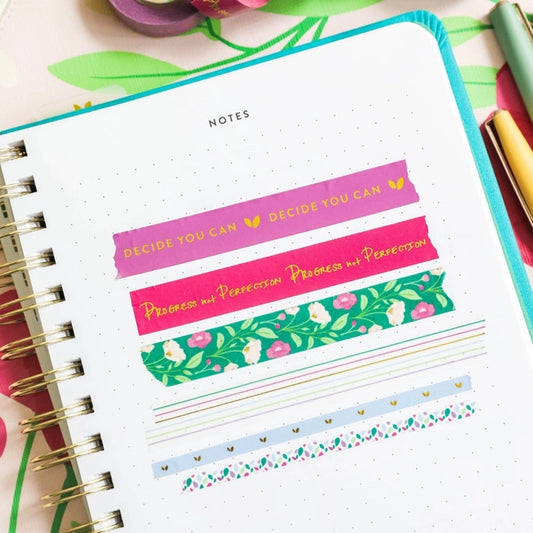 NOTES
DECIDE YOU CAN DECIDE YOU CAN
Progress not Perfection Progress not Perfection